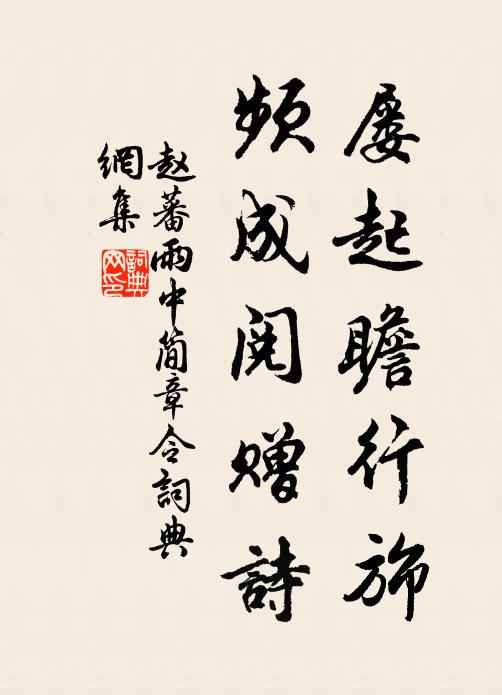 屡起瞻行旆
频成阅赠詩
赵蕃雨中简章令詞典
網集
詞典
网印